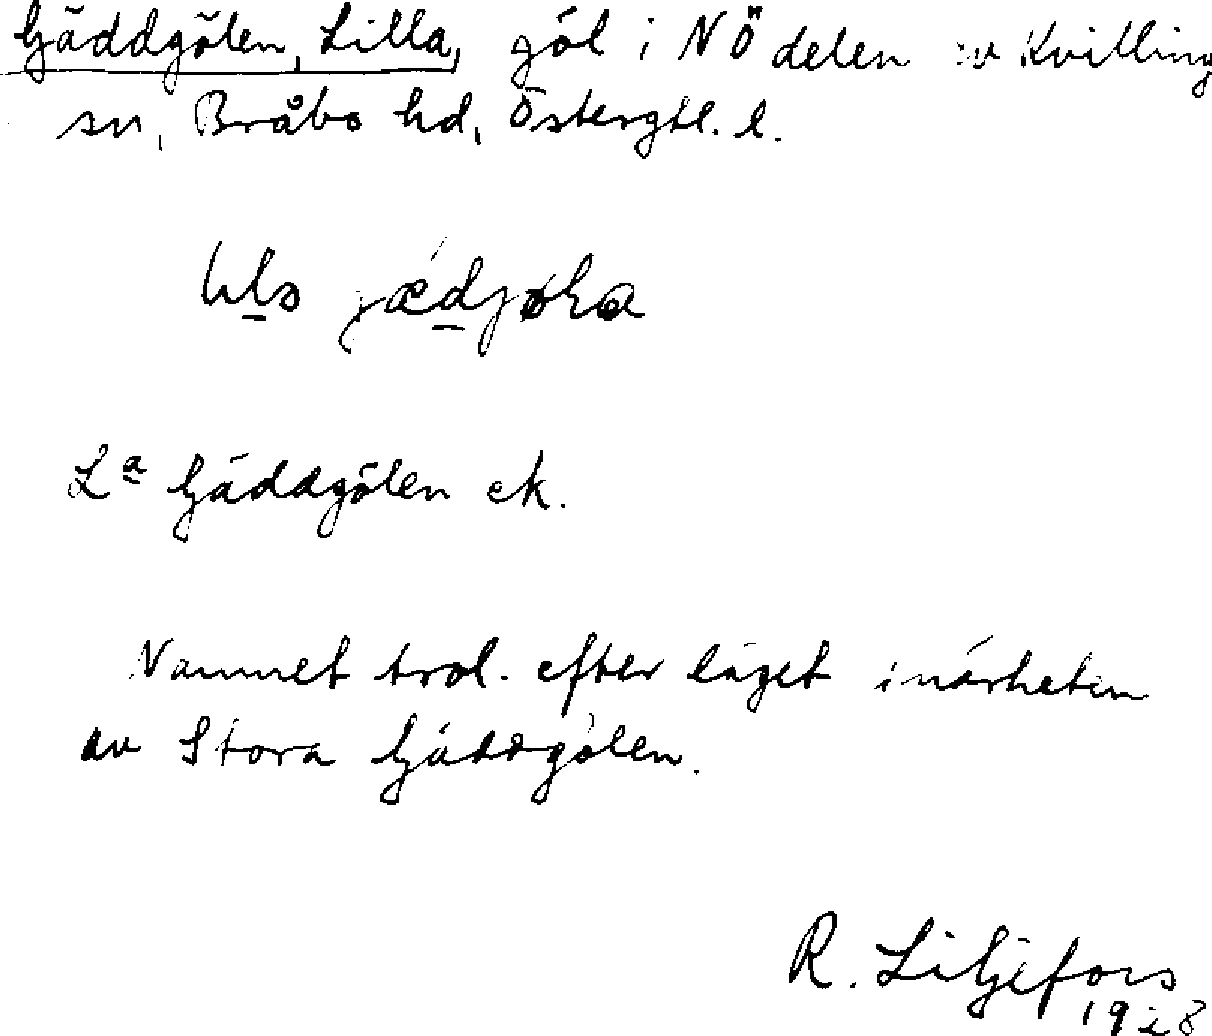 Gäddgölen, Lilla, göl i NÖ delen av Kvillinge
sn, Bråbo hd, Östergtl. l.
La Gäddgölen ek.
Namnet trol. efter läget i närheten
av Stora Gäddgölen.
R. Liljefors
1928